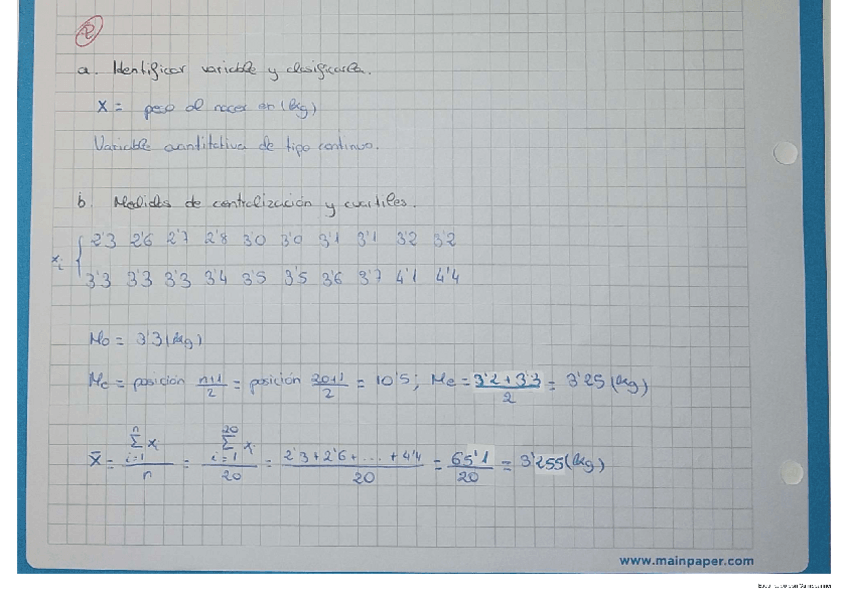 2
a. Identificar variable y clasificarla.
X = peso al nacer en (kg)
Variable cuantitativa de tipo continuo.
b. Medidas de centralización y cuartiles.
xi { 2'3 2'6 2'7 2'8 3'0 3'0 3'1 3'1 3'2 3'2
3'3 3'3 3'3 3'4 3'5 3'5 3'6 3'7 4'1 4'4
Mo = 3'3 (kg)
Me = posición n+1/2 = posición 20+1/2 = 10'5; Me = 3'2 + 3'3/2 = 3'25 (kg)
x̄ = Σ(i=1, n) xi/n = Σ(i=1, 20) xi/20 = 2'3 + 2'6 + ... + 4'4/20 = 65'1/20 = 3'255 (kg)
www.mainpaper.com